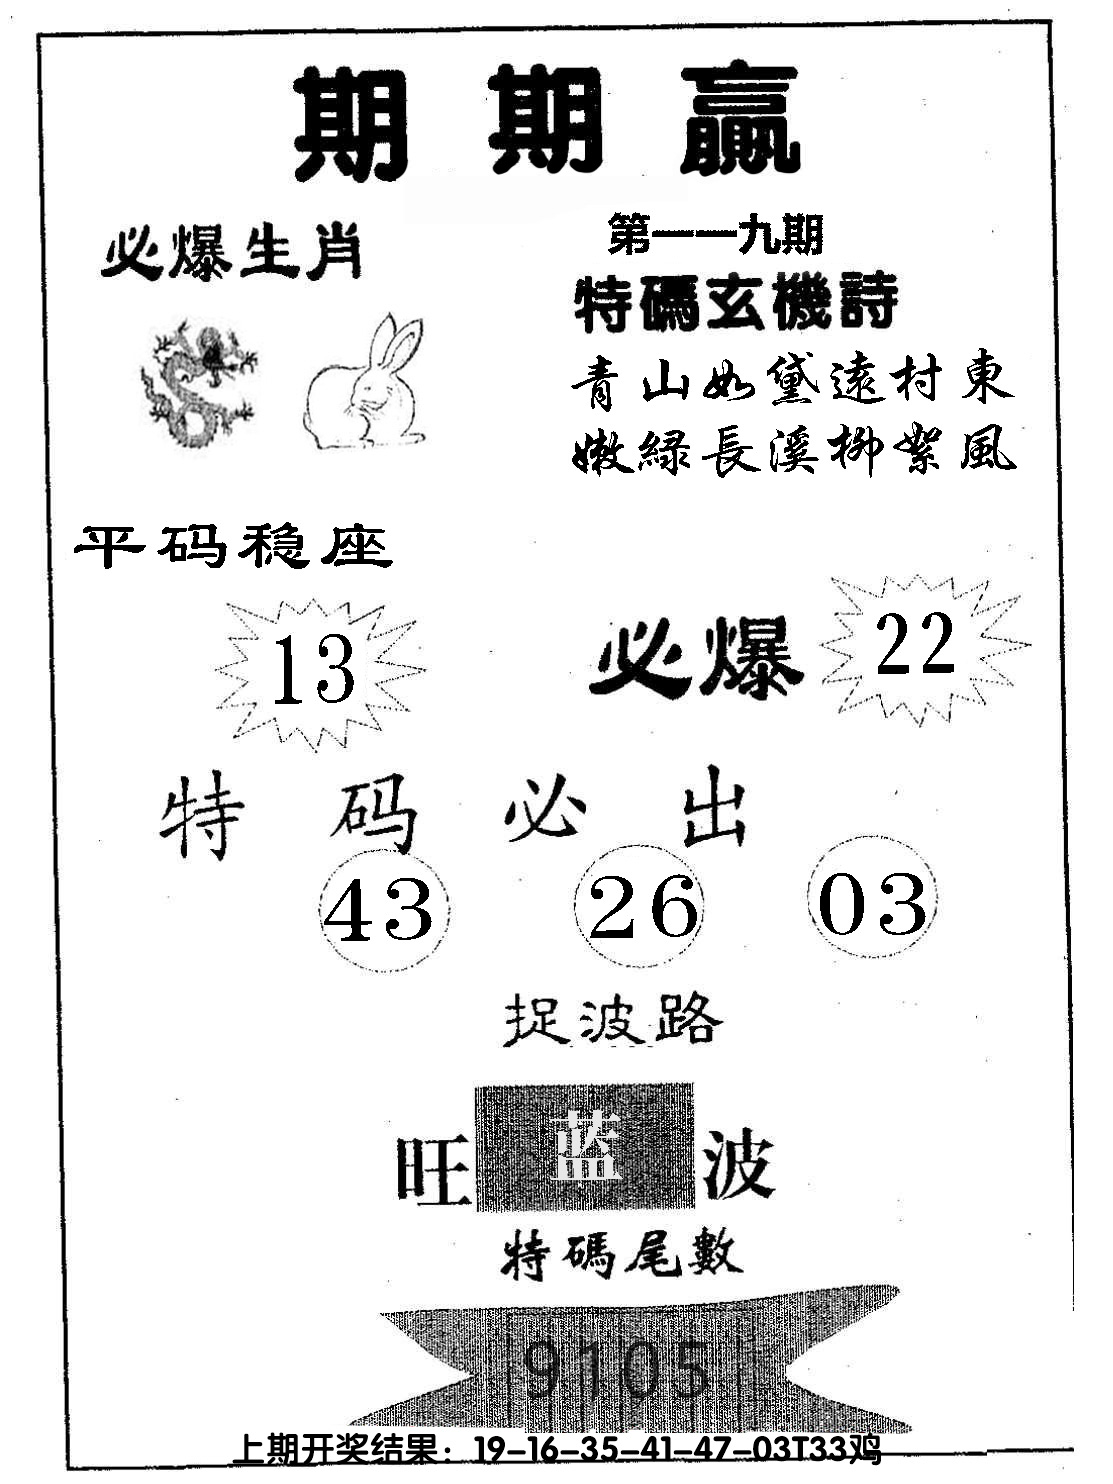 期期赢
必爆生肖
第一一九期
特碼玄機詩
青山如黛遠村東
嫩緑長溪柳絮風
平码稳座
13
必爆 22
特码必出
43 26 03
捉波路
旺 蓝 波
特碼尾數
9105
上期开奖结果：19-16-35-41-47-03T33鸡